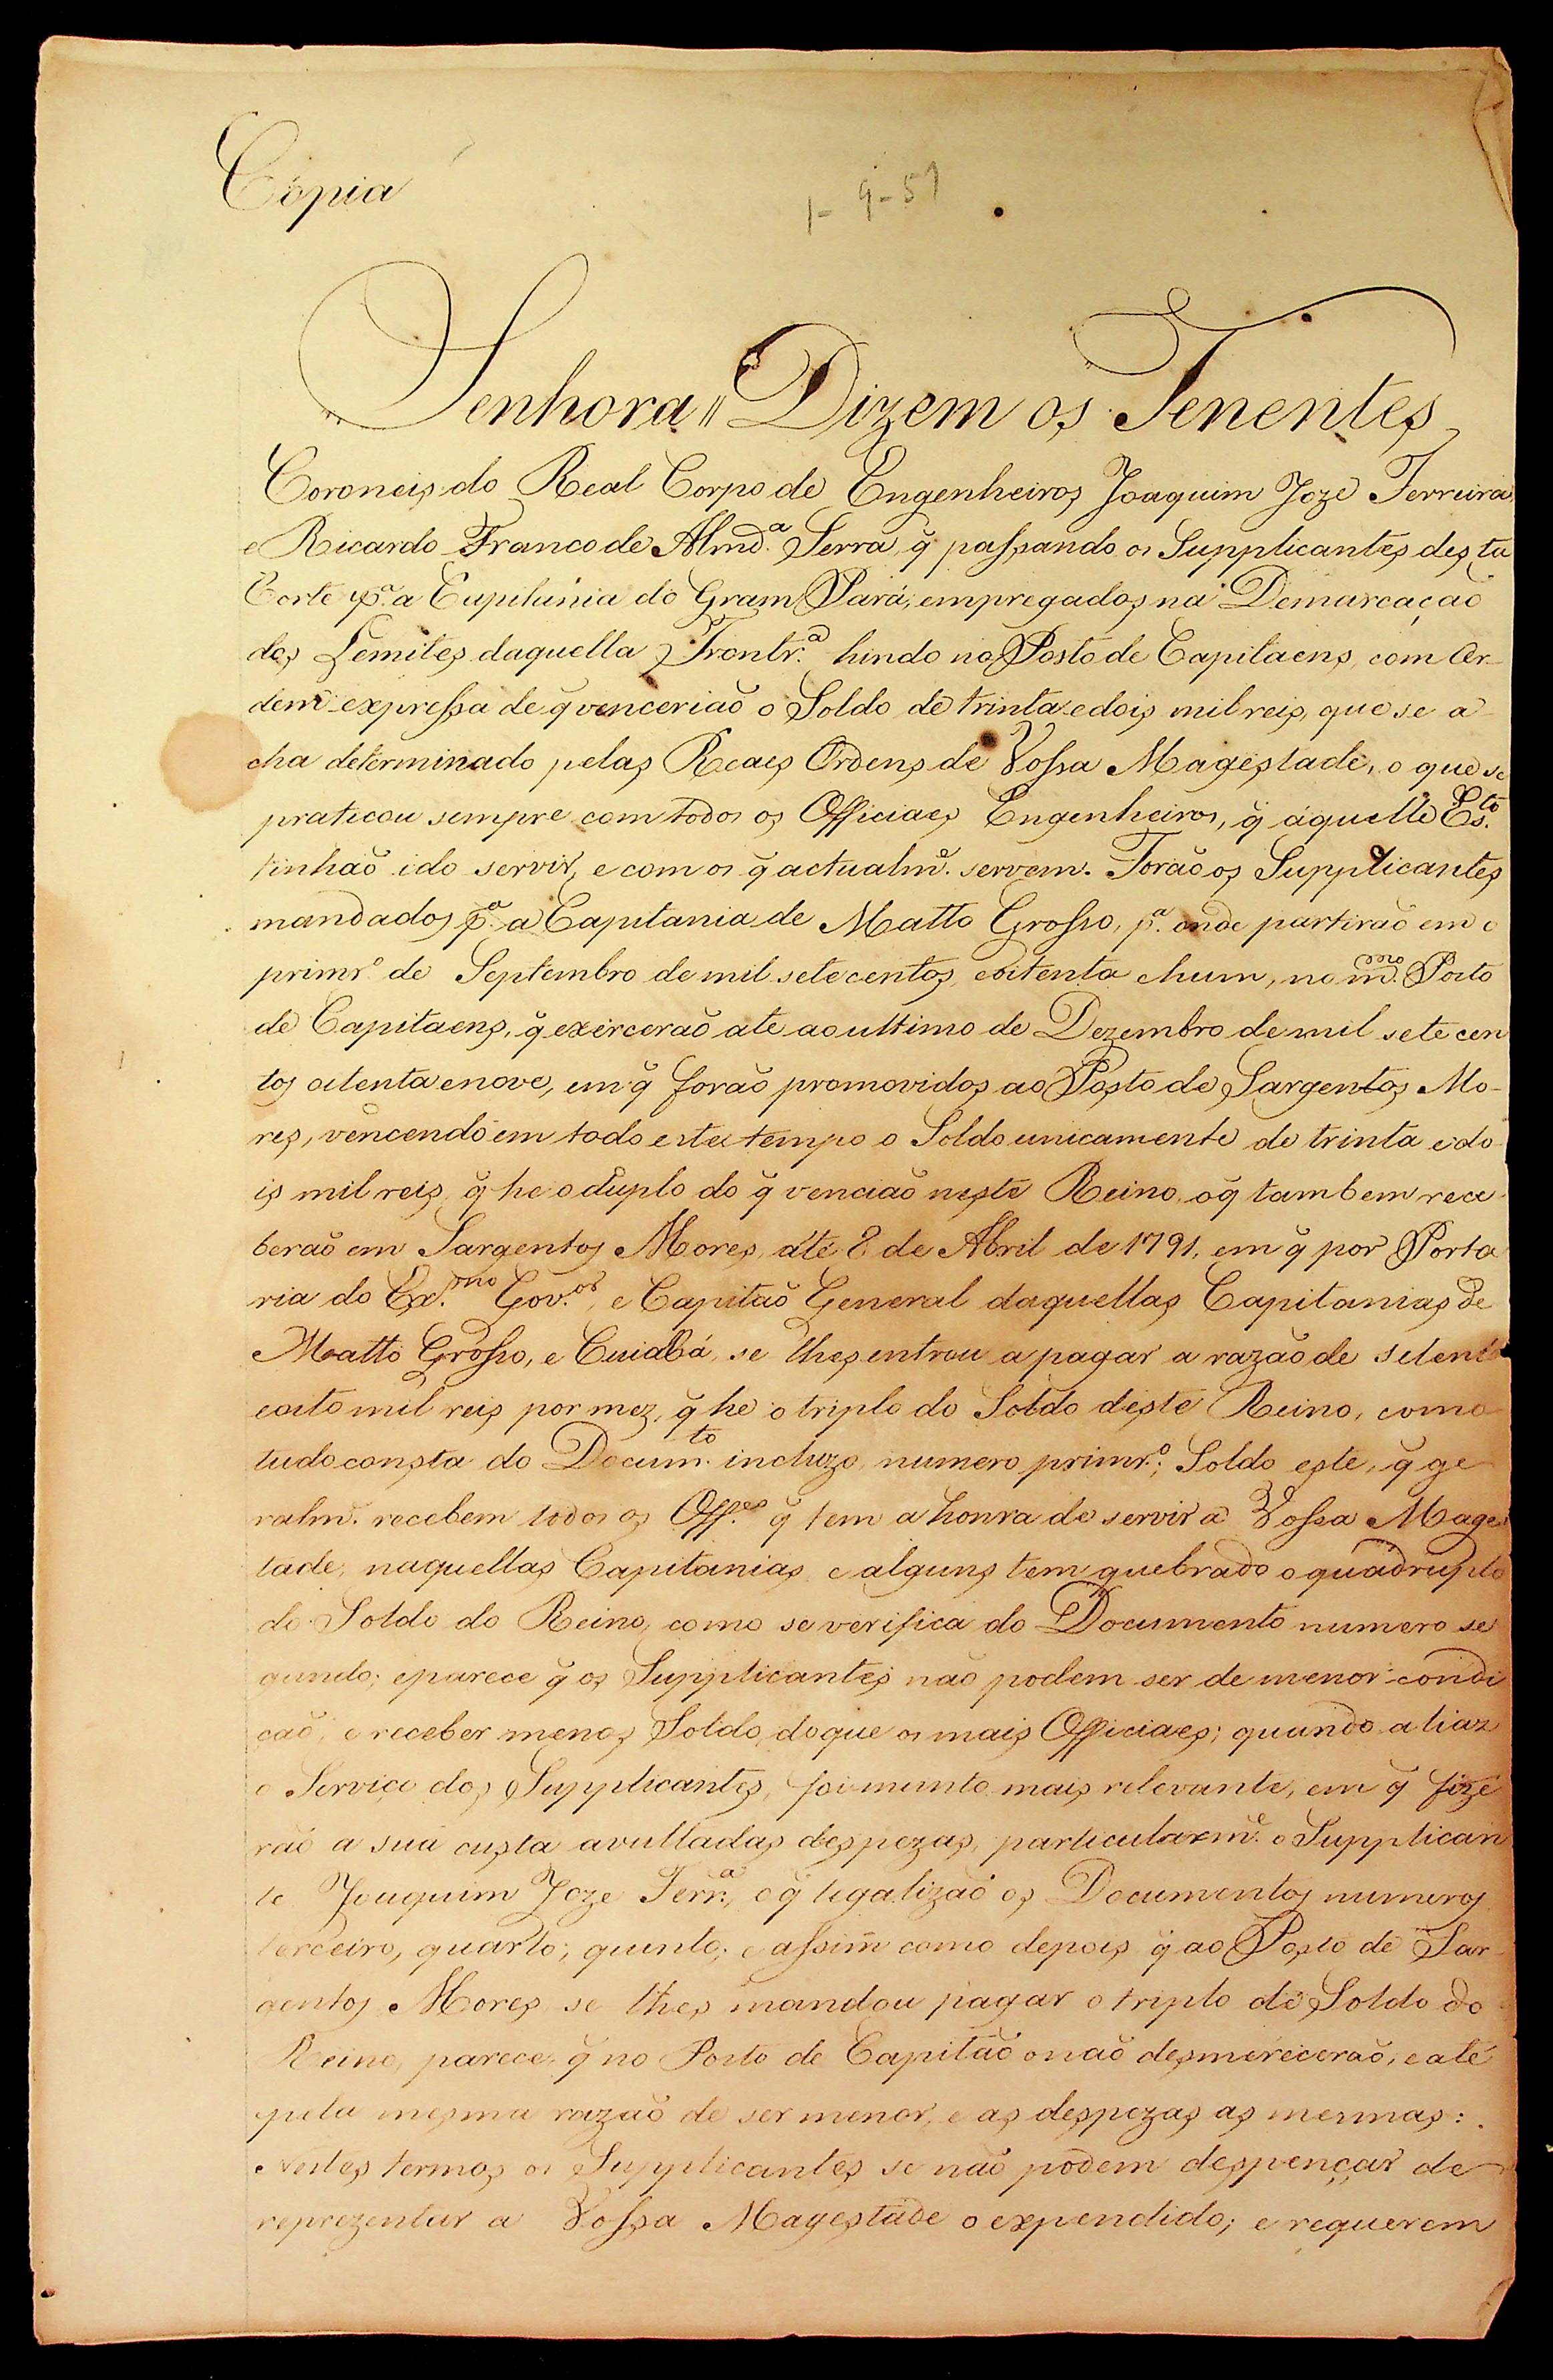 Cópia
1- 9-51
Senhora // Dizem os Tenentes
Coroneis do Real Corpo de Engenheiros Joaquim Joze Ferreira
e Ricardo Franco de Almd.ª Serra, q̃ passando os Supplicantes desta
Corte p.ª a Capitania do Gram Pará, empregados na Demarcaçaõ
dos Lemites daquella Frontr.ª hindo no Posto de Capitaens, com Or-
dem expressa de q̃ venceriaõ o Soldo de trinta e dois mil reis, que se a
cha determinado pelas Reaes Ordens de Vossa Magestade, o que se
praticou sempre com todos os Officiaes Engenheiros, q̃ áquelle Es.to
tinhaõ ido servir, e com os q̃ actualm.e servem. Foraõ os Supplicantes
mandados p.ª a Capitania de Matto Grosso, p.ª onde partiraõ em o
primr.º de Septembro de mil sete centos, eoitenta ehum, no m.mo Posto
de Capitaens, q̃ exerceraõ ate ao ultimo de Dezembro de mil sete cen
tos oitenta enove, em q̃ foraõ promovidos ao Posto de Sargentos Mo-
res, vencendo em todo este tempo o Soldo unicamente de trinta edo
is mil reis, q̃ he o duplo do q̃ venciaõ neste Reino, o q̃ tambem rece
beraõ em Sargentos Mores, até 8 de Abril de 1791, em q̃ por Porta
ria do Ex.mo Gov.or, e Capitaõ General daquellas Capitanias de
Matto Grosso, e Cuiabá, se lhes entrou a pagar a razaõ de setenta
eoito mil reis por mez, q̃ he o triplo do Soldo deste Reino, como
tudo consta do Docum.to incluzo, numero primr.º; Soldo este, q̃ ge
ralm.e recebem todos os Off.es q̃ tem a honra de servir a Vossa Mages
tade, naquellas Capitanias, e alguns tem quebrado o quadruplo
do Soldo do Reino, como se verifica do Documento numero se
gundo; eparece q̃ os Supplicantes naõ podem ser de menor condi
caõ, e receber menos Soldo, doque os mais Officiaes; quando aliaz
o Serviço dos Supplicantes, foi munto mais relevante, em q̃ fize
raõ a sua custa avultadas despezas, particularm.e o Supplican
te Joaquim Joze Ferr.ª, o q̃ legalizaõ os Documentos numeros
terceiro, quarto, quinto; e assim como depois q̃ ao Posto de Sar
gentos Mores se lhes mandou pagar o triplo do Soldo do
Reino, parece, q̃ no Posto de Capitaõ o naõ desmereceraõ, e até
pela mesma razaõ de ser menor, e as despezas as mesmas:
Nestes termos os Supplicantes se naõ podem despençar de
reprezentar a Vossa Magestade o expendido; e requerem